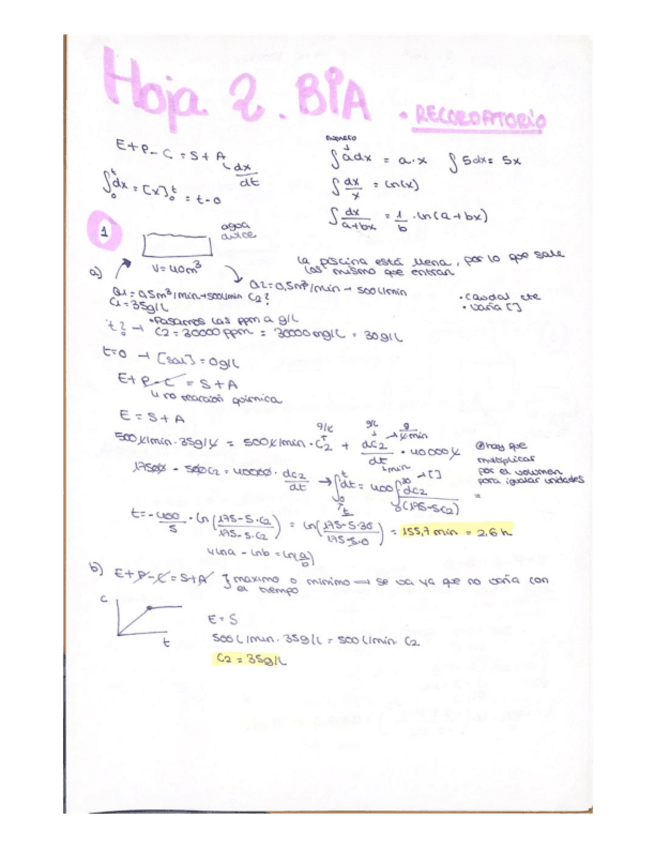 Hoja 2. BIA • RECORDATORIO
E + P - C = S + A
dx/dt
∫₀ᵗ dx = [x]₀ᵗ = t - 0
número
∫ a dx = a · x   ∫ 5 dx = 5x
∫ dx/x = Ln(x)
∫ dx/(a+bx) = 1/b · Ln(a+bx)
1
agua dulce
V = 40m³
La piscina está llena, por lo que sale
las mismo que entran
a)
Q1 = 0,5m³/min → 500L/min C2?
C1 = 35g/L
Q2 = 0,5m³/min → 500L/min
• caudal cte
• varía []
• Pasamos las ppm a g/L
t? → C2 = 30000 ppm = 30000mg/L = 30g/L
t=0 → [sal] = 0g/L
E + P - C = S + A
no reacción química
E = S + A
500L/min · 35g/L = 500L/min · C2 + dC2/dt · 40000L
hay que
multiplicar
por el volumen
para igualar unidades
17500 - 500C2 = 40000 · dC2/dt → ∫₀ᵗ dt = 400 ∫₀³⁰ dC2/(175-5C2) =
t = -400/5 · Ln(175-5·C2/175-5·C2) = Ln(175-5·30/175-5·0) = 155,7 min = 2,6 h
Lna - Lnb = Ln(a/b)
b) E + P - C = S + A } máximo o mínimo → se va ya que no varía con
el tiempo
C
t
E = S
500L/min · 35g/L = 500L/min C2
C2 = 35g/L